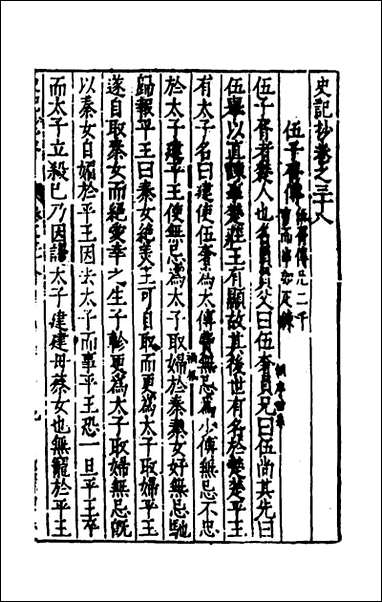 史記抄卷之三十八
伍子胥傳
伍子胥者楚人也名員員父曰伍奢員兄曰伍尚其先曰
伍舉以直諫事楚莊王有顯故其後世有名於楚楚平王
有太子名曰建使伍奢爲太傅費無忌爲少傅無忌不忠
於太子建平王使無忌爲太子取婦於秦秦女好無忌馳
歸報平王曰秦女絕美王可自取而更爲太子取婦平王
遂自取秦女而絕愛幸之生子軫更爲太子取婦無忌既
以秦女自媚於平王因去太子而事平王恐一旦平王卒
而太子立殺己乃因讒太子建建母蔡女也無寵於平王